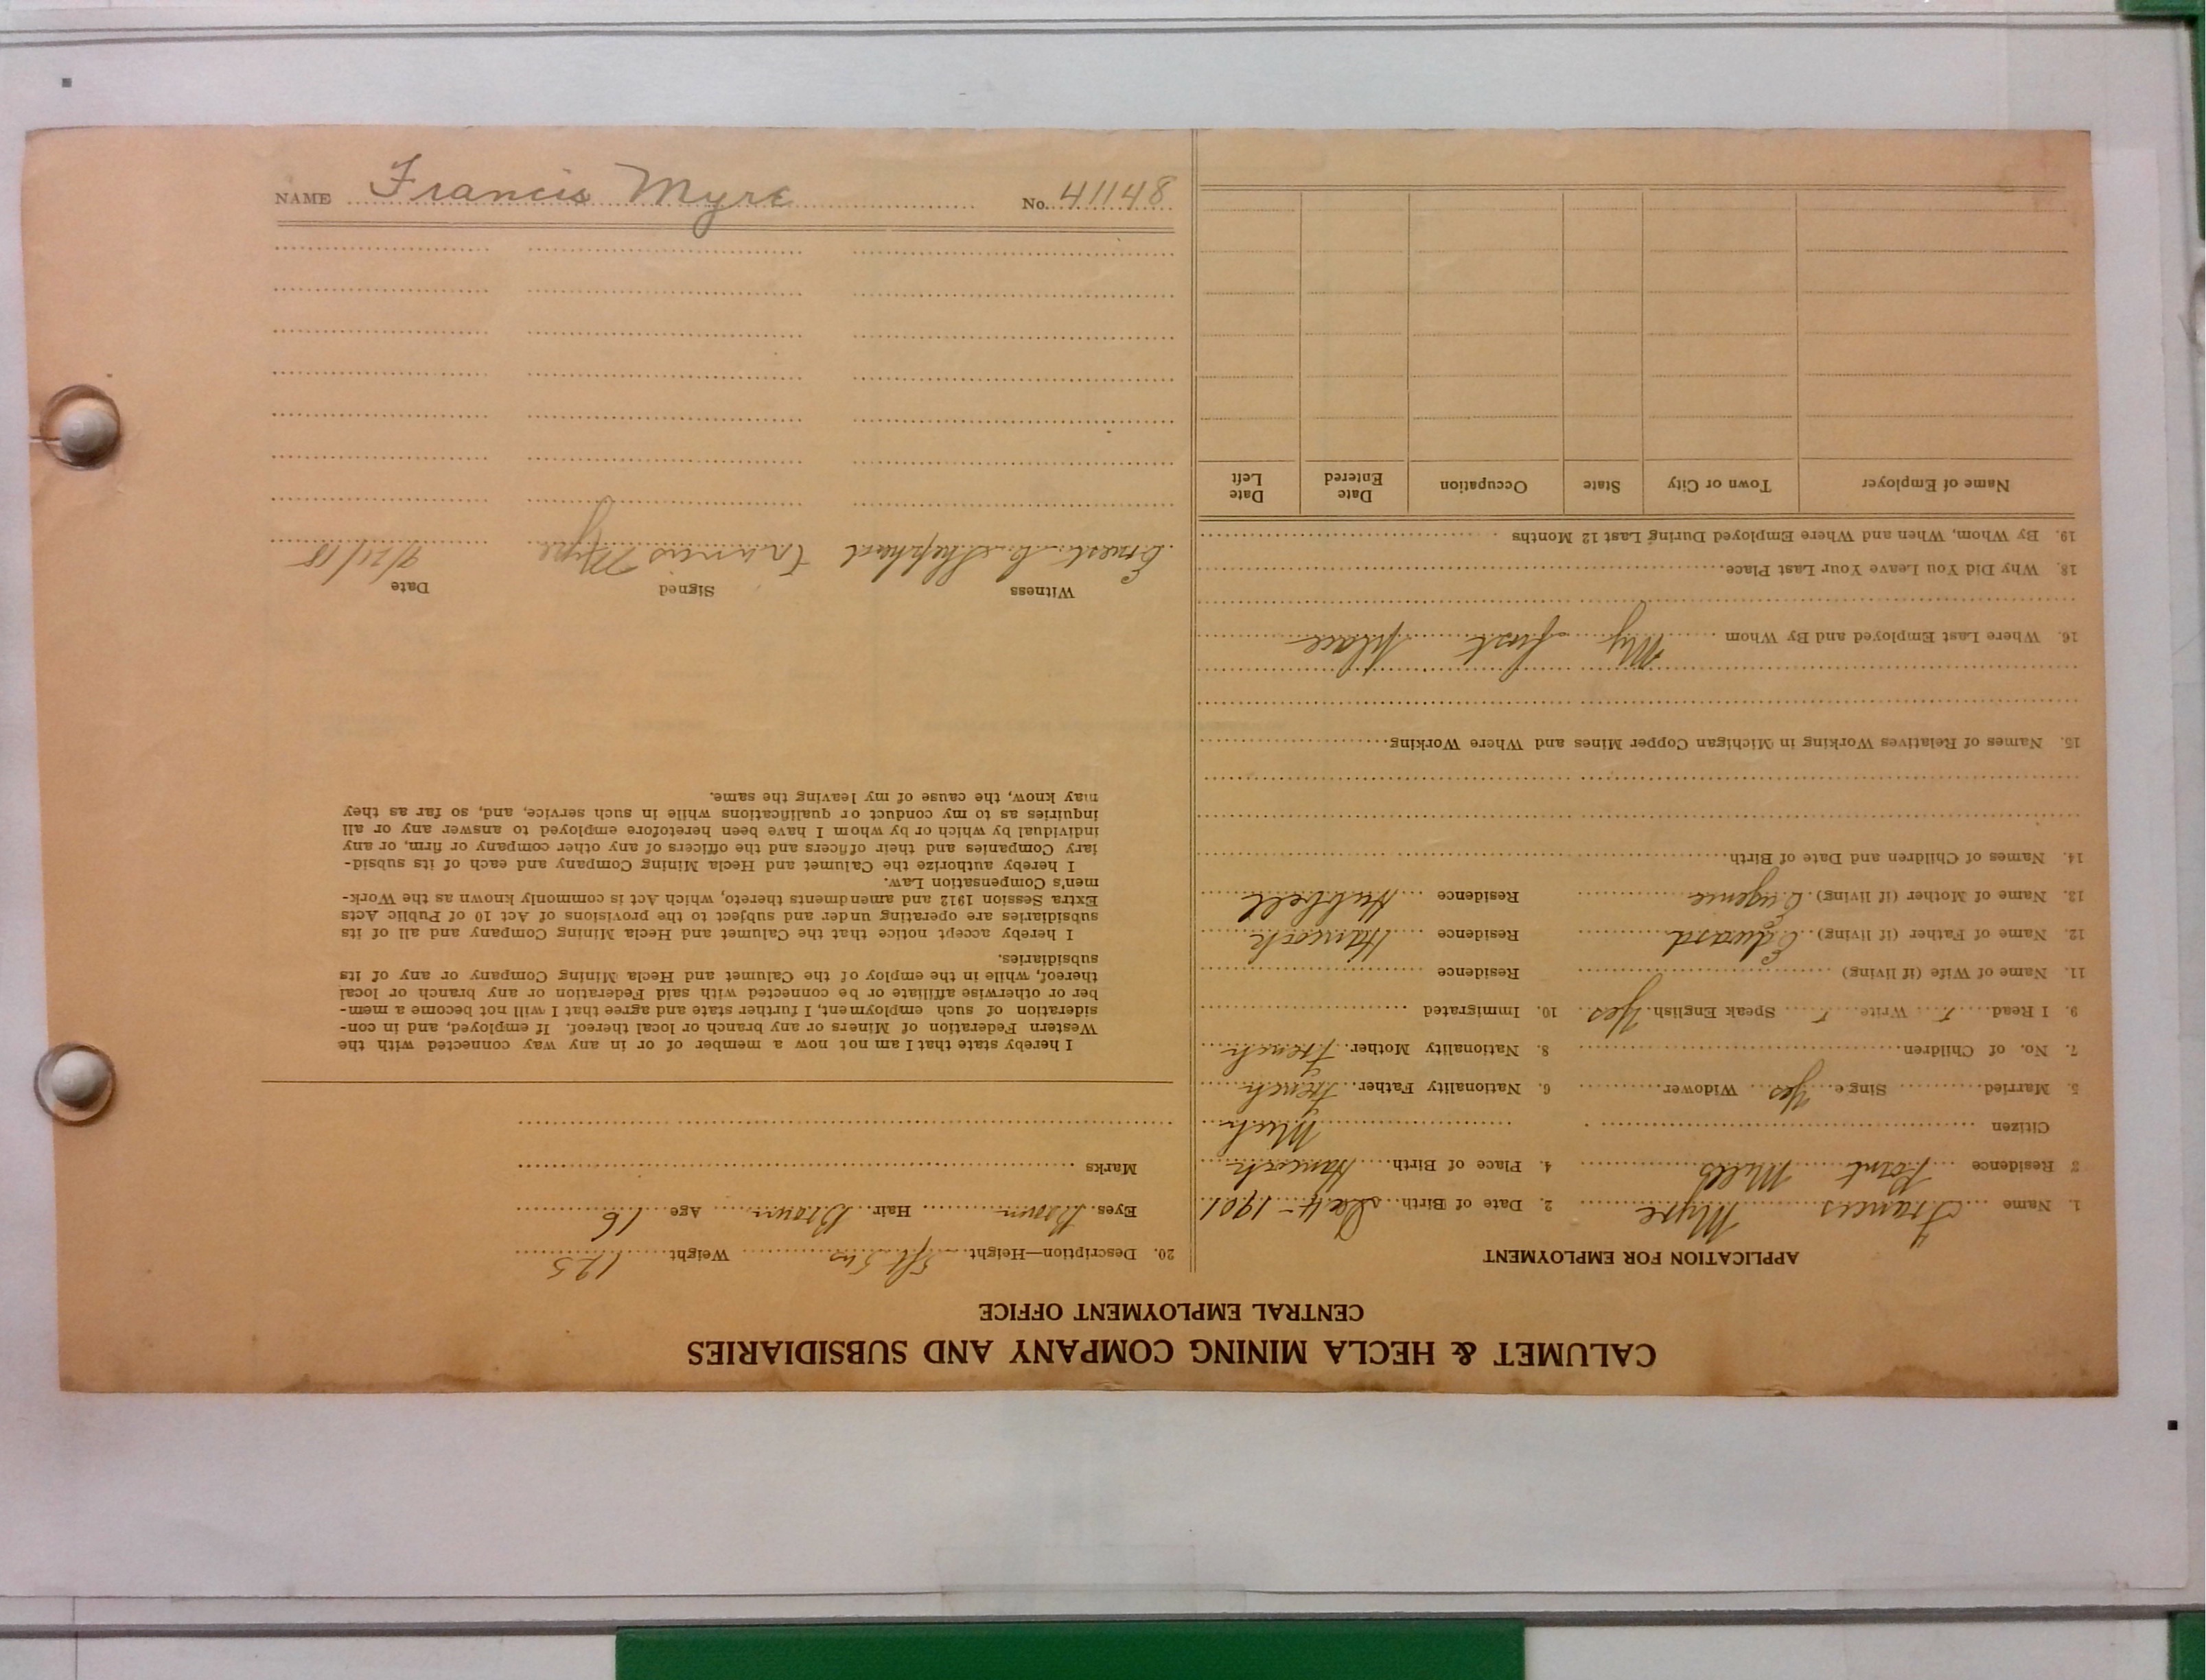 CALUMET & HECLA MINING COMPANY AND SUBSIDIARIES
CENTRAL EMPLOYMENT OFFICE
APPLICATION FOR EMPLOYMENT
1. Name Francis Myre 2. Date of Birth 1901
3 Residence Point Mills 4. Place of Birth Hancock
Citizen Mich
5. Married Sing e Yes Widower 6. Nationality Father French
7. No. of Children 8. Nationality Mother French
9. I Read Write Speak English Yes 10. Immigrated
11. Name of Wife (if living) Residence
12. Name of Father (if living) Edward Residence Hancock
13. Name of Mother (if living) Eugenie Residence Hubbell
14. Names of Children and Date of Birth
15. Names of Relatives Working in Michigan Copper Mines and Where Working
16. Where Last Employed and By Whom My first place
18. Why Did You Leave Your Last Place
19. By Whom, When and Where Employed During Last 12 Months
Name of Employer Town or City State Occupation Date Entered Date Left
20. Description—Height 5 ft 5 in Weight 125
Eyes Brown Hair Brown Age 16
Marks
I hereby state that I am not now a member of or in any way connected with the
Western Federation of Miners or any branch or local thereof. If employed, and in con-
sideration of such employment, I further state and agree that I will not become a mem-
ber or otherwise affiliate or be connected with said Federation or any branch or local
thereof, while in the employ of the Calumet and Hecla Mining Company or any of its
subsidiaries.
I hereby accept notice that the Calumet and Hecla Mining Company and all of its
subsidiaries are operating under and subject to the provisions of Act 10 of Public Acts
Extra Session 1912 and amendments thereto, which Act is commonly known as the Work-
men's Compensation Law.
I hereby authorize the Calumet and Hecla Mining Company and each of its subsid-
iary Companies and their officers and the officers of any other company or firm, or any
individual by which or by whom I have been heretofore employed to answer any or all
inquiries as to my conduct or qualifications while in such service, and, so far as they
may know, the cause of my leaving the same.
Witness Signed Date
Ernest Shephard Francis Myre /21/18
NAME Francis Myre No. 41148